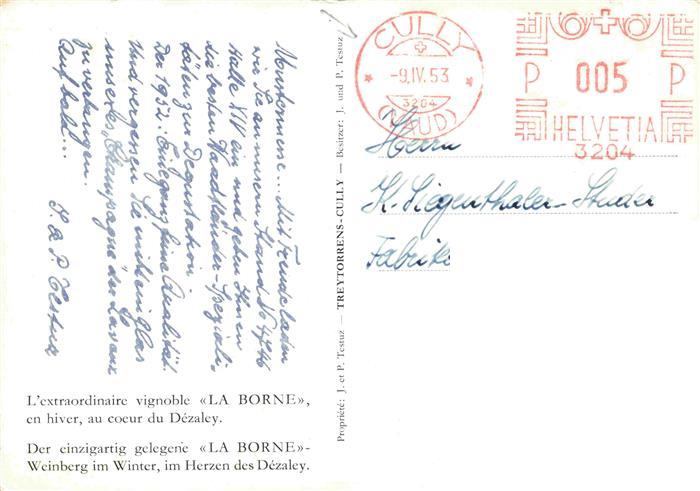 Mustermesse... Mit Freude laden
wir Sie an unsern Stand No 4746
Halle XIV ein und geben Ihnen
die besten Waadtländer-Speziali-
täten zur Degustation
Der 1952: Einzigang feine Qualität.
Und vergessen Sie nicht ein Glas
unseres „Champagne" des Lavaux
zu verlangen.
Auf bald...
J. & P. Testuz
L'extraordinaire vignoble «LA BORNE»,
en hiver, au coeur du Dézaley.
Der einzigartig gelegene «LA BORNE»-
Weinberg im Winter, im Herzen des Dézaley.
Propriété: J. et P. Testuz — TREYTORRENS-CULLY — Besitzer: J. und P. Testuz
CULLY
-9.IV.53
3204
(VAUD)
P 005 P
HELVETIA
3204
Herrn
K. Siegenthaler-Studer
Fabrik